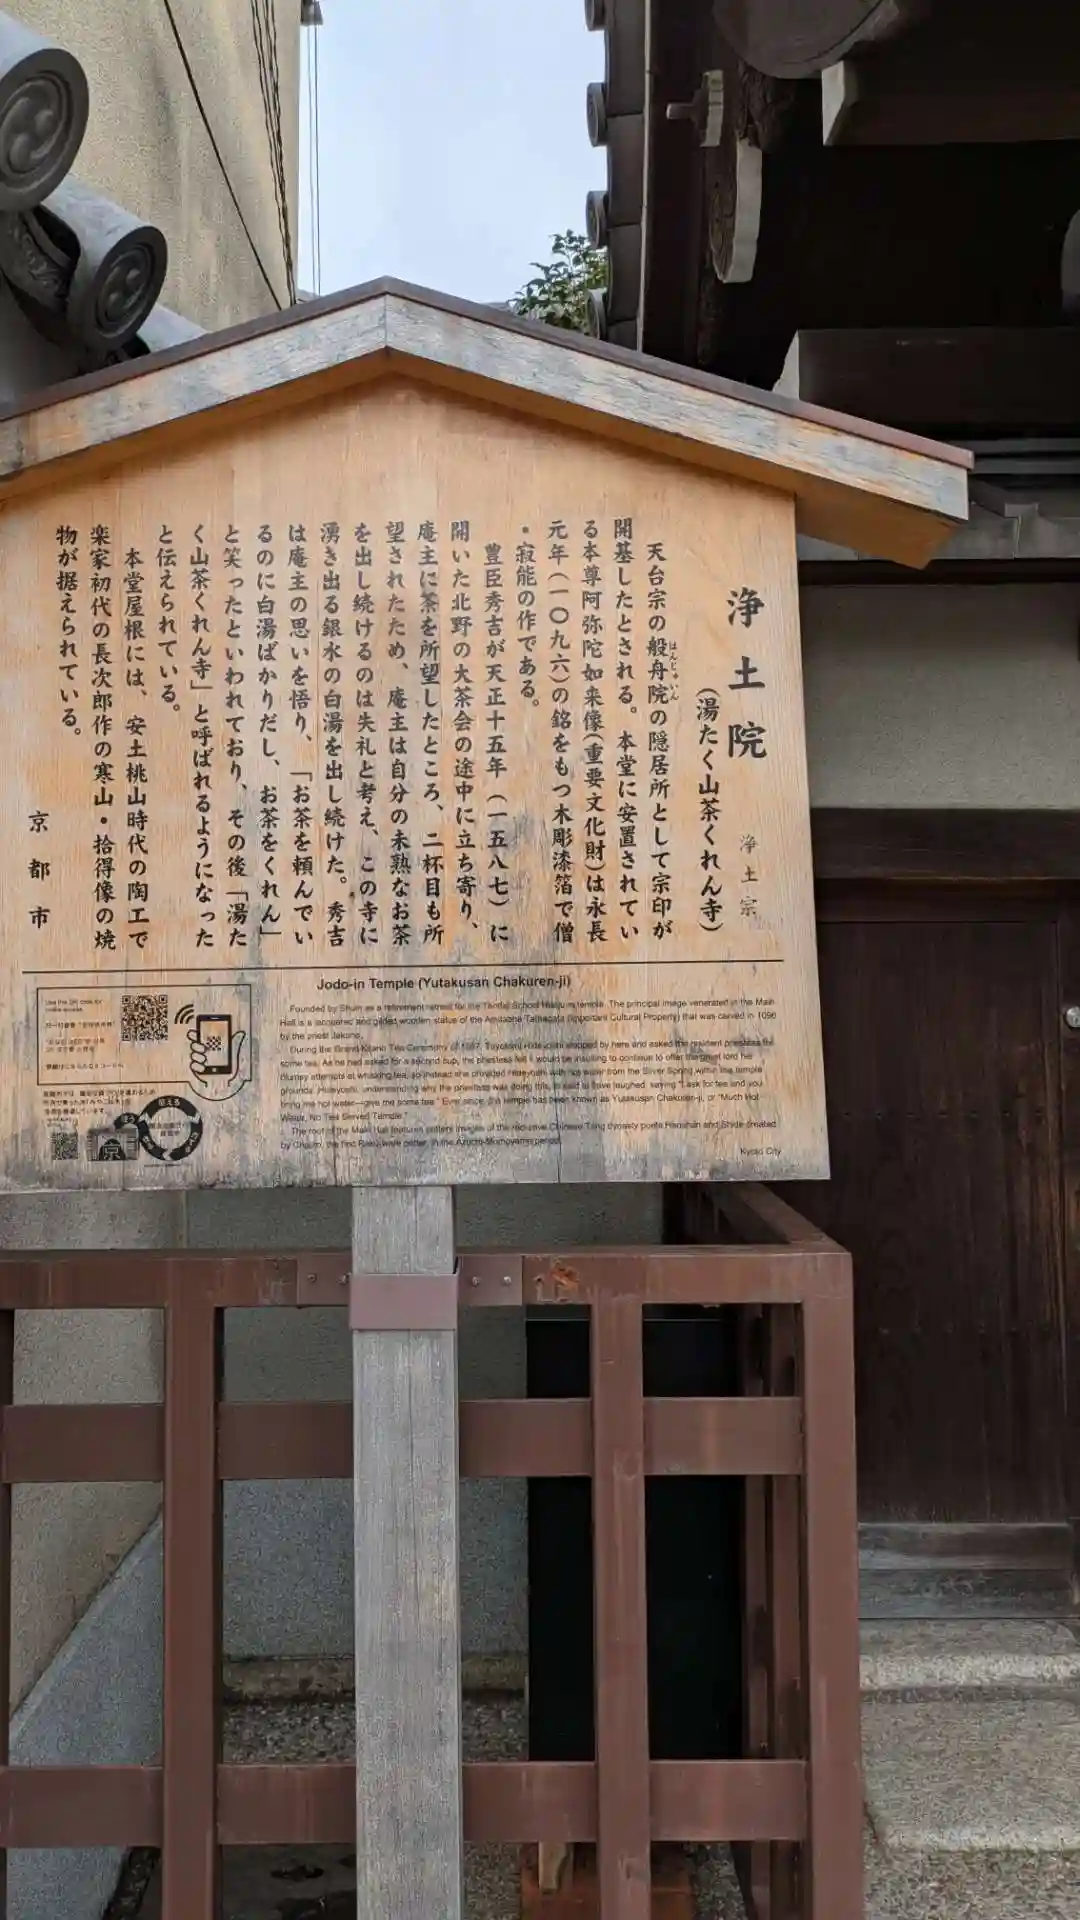 浄土院
浄土宗
(湯たく山茶くれん寺)
天台宗の般舟院の隠居所として宗印が
はんじゅいん
開基したとされる。本堂に安置されてい
る本尊阿弥陀如来像(重要文化財)は永長
元年(一〇九六)の銘をもつ木彫漆箔で僧
・寂能の作である。
豊臣秀吉が天正十五年(一五八七)に
開いた北野の大茶会の途中に立ち寄り、
庵主に茶を所望したところ、二杯目も所
望されたため、庵主は自分の未熟なお茶
を出し続けるのは失礼と考え、この寺に
湧き出る銀水の白湯を出し続けた。秀吉
は庵主の思いを悟り、「お茶を頼んでい
るのに白湯ばかりだし、お茶をくれん」
と笑ったといわれており、その後「湯た
く山茶くれん寺」と呼ばれるようになった
と伝えられている。
本堂屋根には、安土桃山時代の陶工で
楽家初代の長次郎作の寒山・拾得像の焼
物が据えられている。
京都市
Jodo-in Temple (Yutakusan Chakuren-ji)
Founded by Shuin as a retirement retreat for the Tendai School Hanju-in temple. The principal image venerated in the Main
Hall is a lacquered and gilded wooden statue of the Amitabha Tathagata (Important Cultural Property) that was carved in 1096
by the priest Jakuno.
During the Grand Kitano Tea Ceremony of 1587, Toyotomi Hideyoshi stopped by here and asked the resident priestess for
some tea. As he had asked for a second cup, the priestess felt it would be insulting to continue to offer the great lord her
clumsy attempts at whisking tea, so instead she provided Hideyoshi with hot water from the Silver Spring within the temple
grounds. Hideyoshi, understanding why the priestess was doing this, is said to have laughed, saying "I ask for tea and you
bring me hot water—give me some tea." Ever since, the temple has been known as Yutakusan Chakuren-ji, or "Much Hot
Water, No Tea Served Temple."
The roof of the Main Hall features pottery images of the reclusive Chinese Tang dynasty poets Hanshan and Shide created
by Chojiro, the first Raku-ware potter, in the Azuchi-Momoyama period.
Kyoto City
Use the QR code for
京